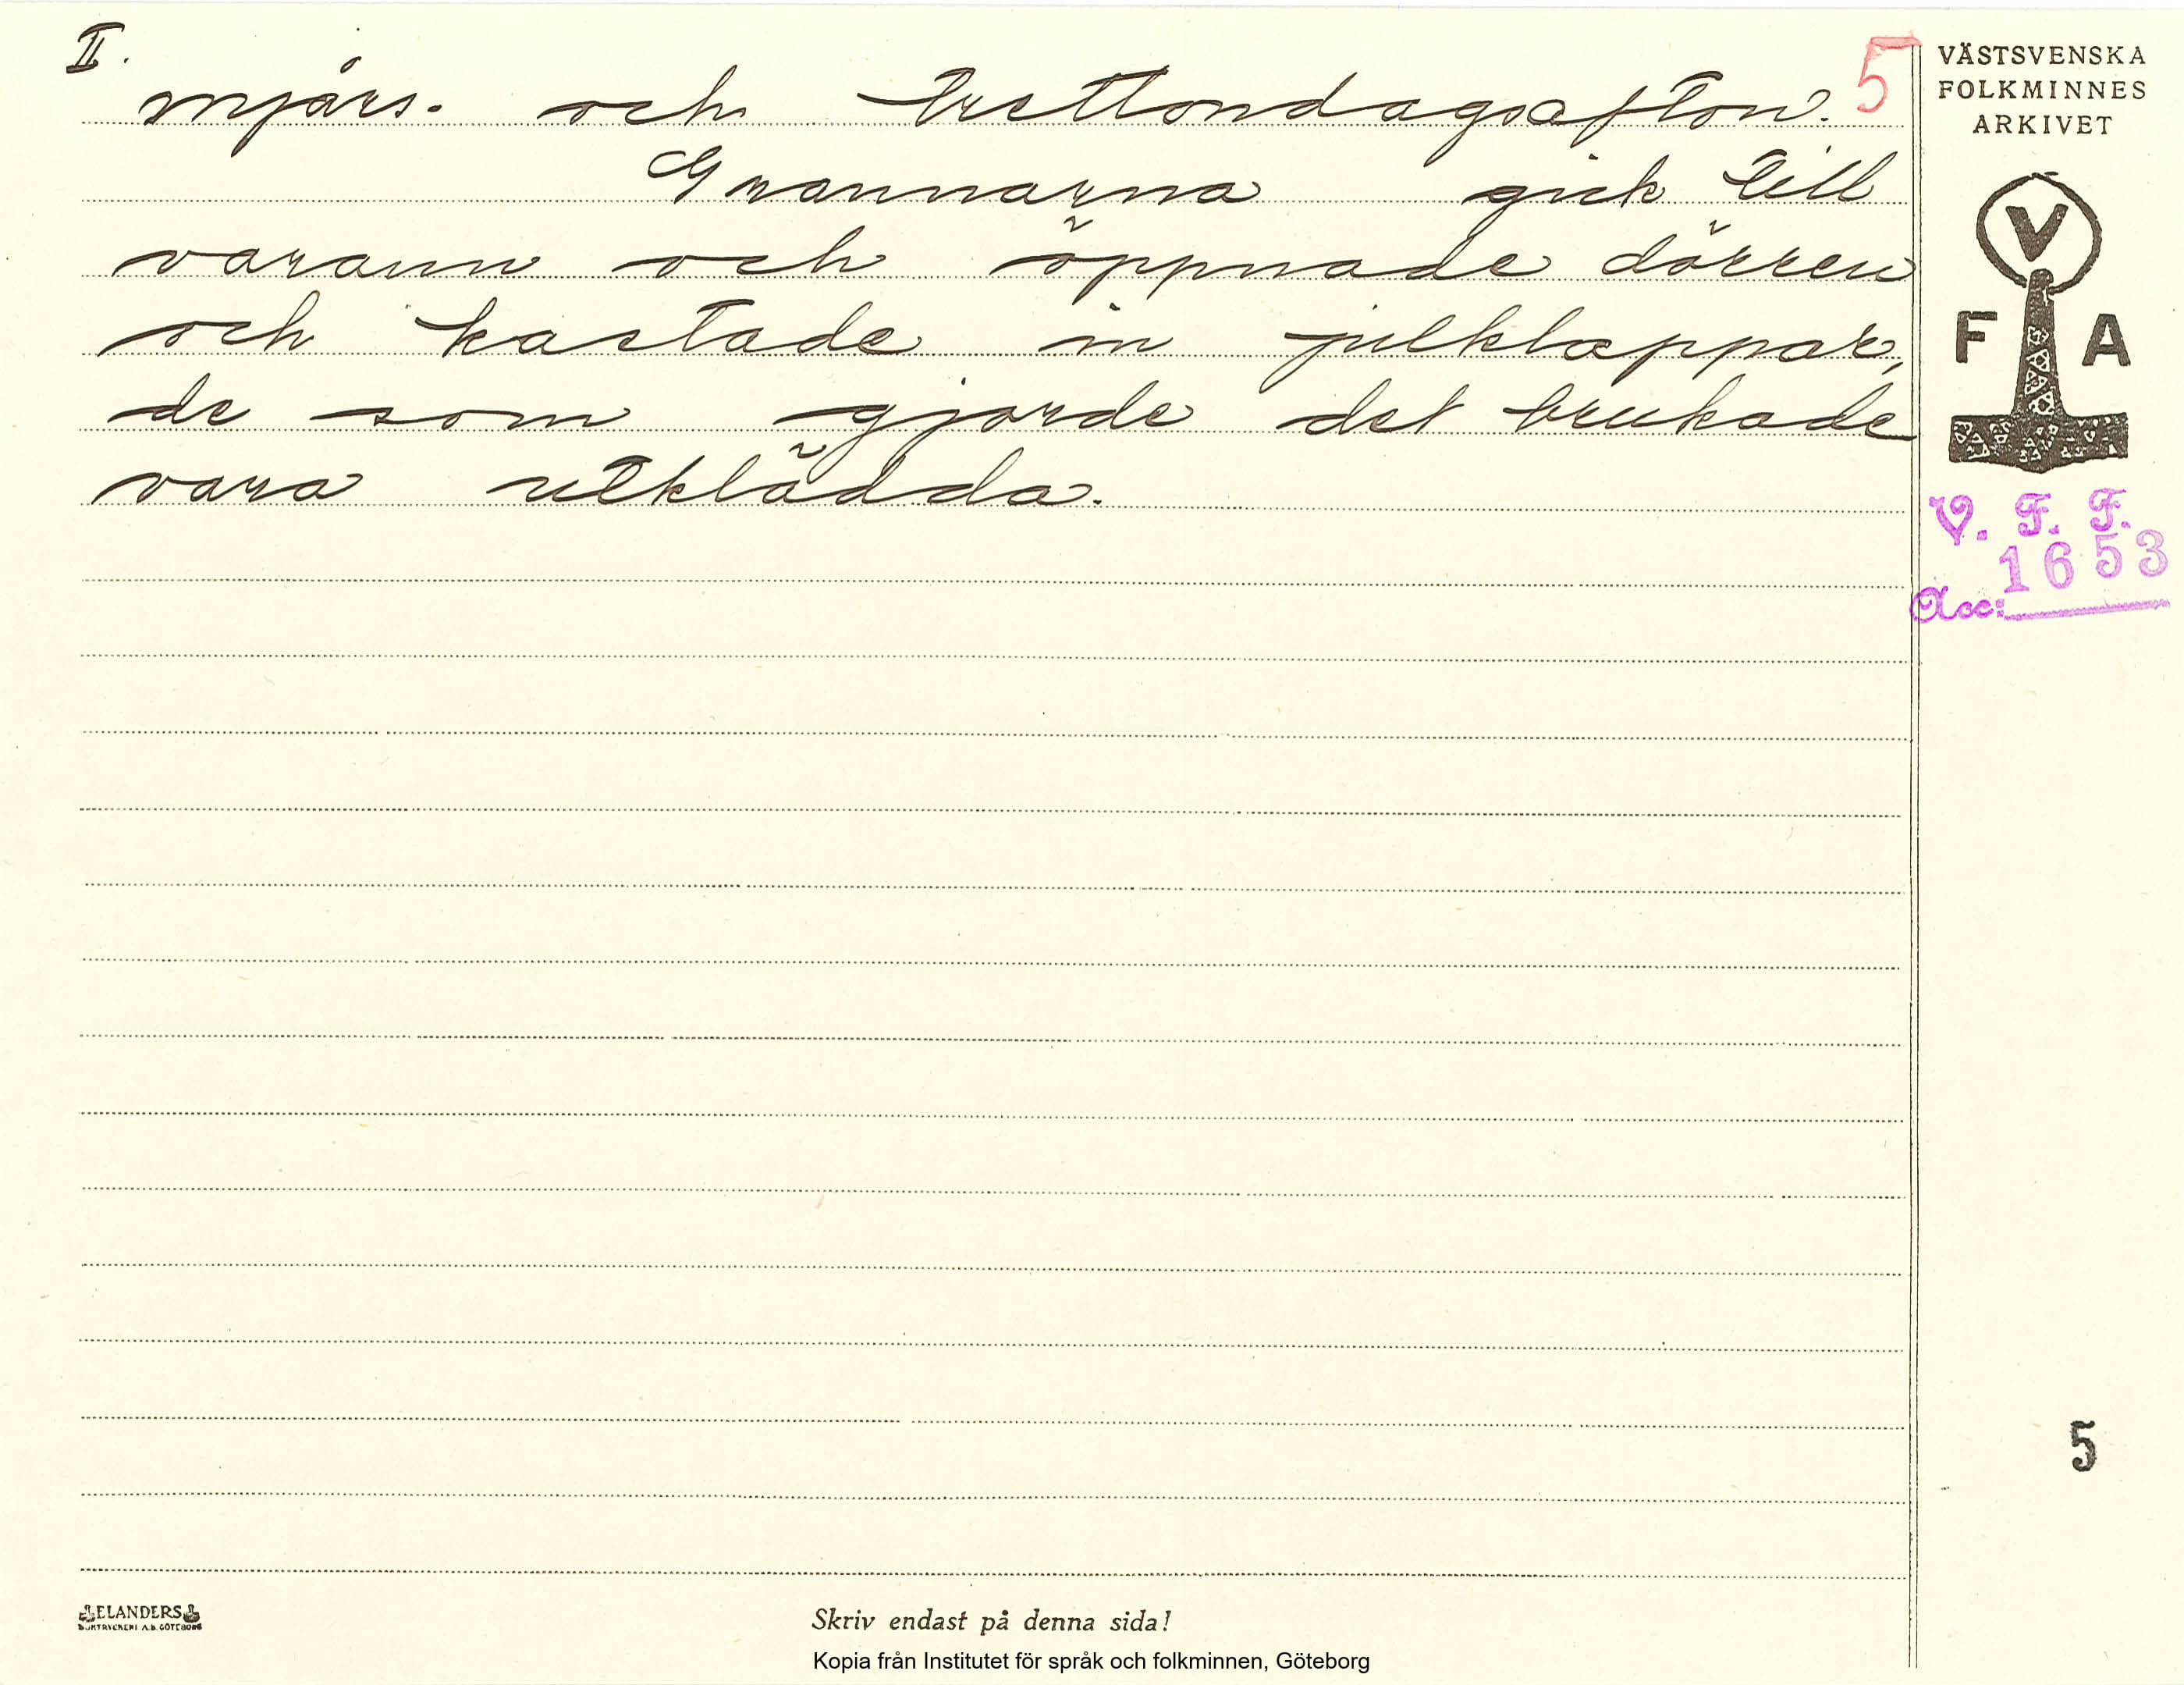 II.
njårs- och trettondagsafton.
5
Grannarna gick till
varann och öppnade dörren
och kastade in julklappar,
de som gjorde det brukade
vara utklädda.
VÄSTSVENSKA
FOLKMINNES
ARKIVET
V
F A
V. F. F.
1653
Acc:
5
ELANDERS
BOKTRYCKERI A.B. GÖTEBORG
Skriv endast på denna sida!
Kopia från Institutet för språk och folkminnen, Göteborg